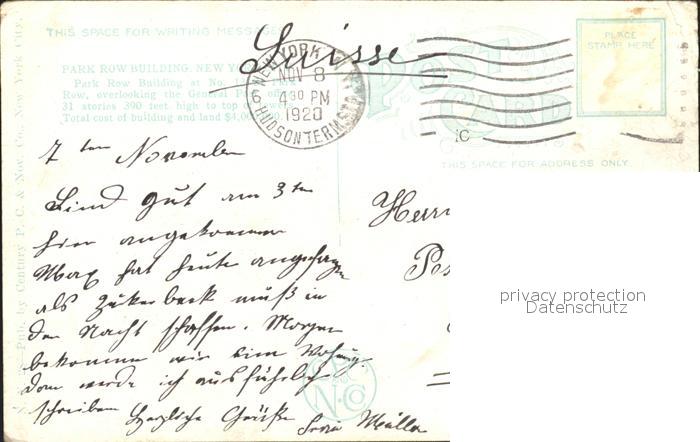 THIS SPACE FOR WRITING MESSAGES
Suisse
PARK ROW BUILDING, NEW YORK
Park Row Building at No.
Row, overlooking the General Post
31 stories 390 feet high to top of
Total cost of building and land $4,000,000.
NEW YORK, N.Y.
NOV 8
4 30 PM
1920
HUDSON TERM. STA.
POST
CARD
PLACE
STAMP HERE
THIS SPACE FOR ADDRESS ONLY
Pub. by Century P. C. & Nov. Co., New York City.
7ten November
Sind gut am 3ten
hier angekommen
Max hat heute angefangen
als Zukerbeck muß in
der Nacht schaffen. Morgen
bekommen wir eine Wohnung.
dann werde ich ausführlich
schreiben Herzliche Grüße
Müller
Herrn
Pos
N. Co
privacy protection
Datenschutz